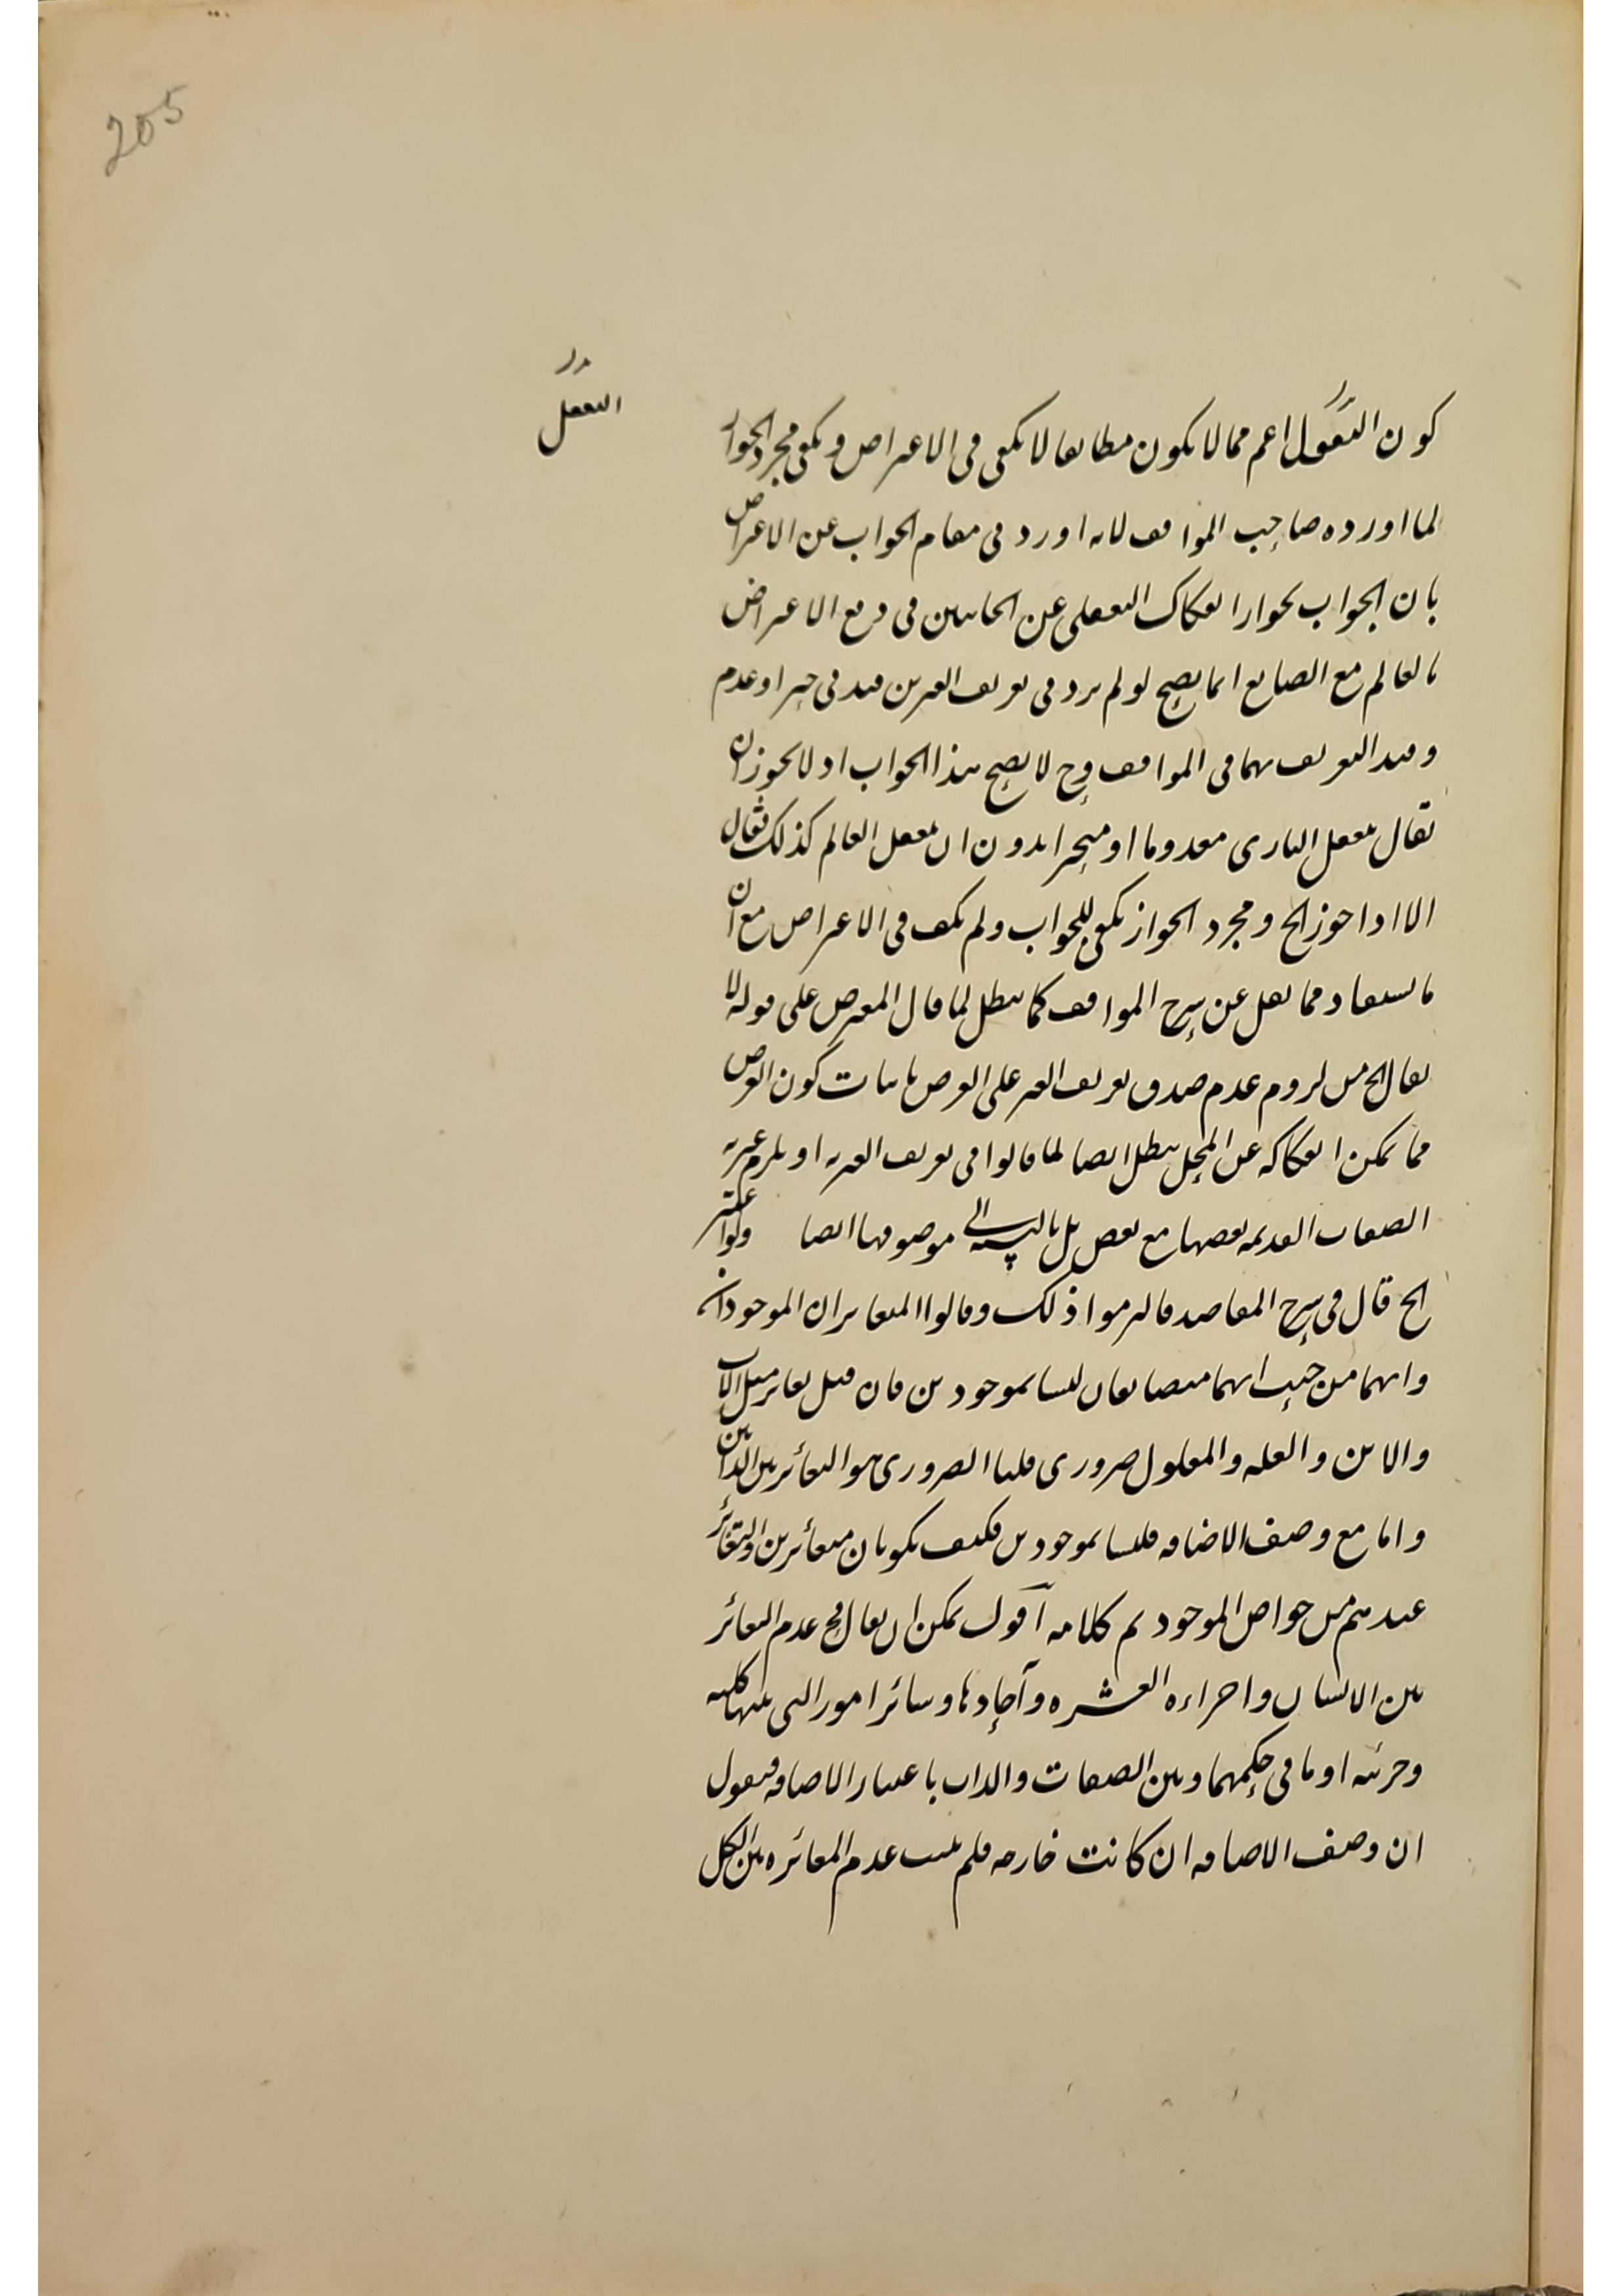 205
التعقل
كون التعقل اعم مما لا يكون مطابقا لا يكفى فى الاعتراض ويكفى مجرد الجواز
لما اورده صاحب المواقف لانه اورد فى مقام الجواب عن الاعتراض
بان الجواب بجواز انفكاك التعقلى عن الجانبين فى دفع الاعتراض
بالعالم مع الصانع انما يصح لو لم يرد فى تعريف الغيرين قيد فى حيز او عدم
وقيد التعريف بهما فى المواقف وح لا يصح هذا الجواب اذ لا يجوز ان
يقال بتعقل البارى معدوما او متحيزا بدون ان يتعقل العالم كذلك يقال
الا اذا جوز الخ ومجرد الجواز يكفى للجواب ولم يكف فى الاعتراض مع ان
ما يستفاد مما نقل عن شرح المواقف كما يبطل لما قال المعترض على قوله لا
يقال الخ من لزوم عدم صدق تعريف الغير على العرض باثبات كون العرض
مما يمكن انفكاكه عن المحل يبطل ايضا لما قالوا فى تعريف الغيريه او يلزم غيرية
الصفات القديمه بعضها مع بعض بل بالنسبة الى موصوفها ايضا ولو اعتبر
الخ قال فى شرح المقاصد فالتزموا ذلك وقالوا المتغايران الموجودان
وانهما من حيث انهما متضايفان ليسا بموجودين فان قيل تغاير مثل الاب
والابن والعله والمعلول ضرورى قلنا الضرورى هو التغائر بين الذاتين
واما مع وصف الاضافه فليسا بموجودين فكيف يكونان متغائرين والتغائر
عندهم من خواص الموجود تم كلامه اقول يمكن ان يقال فح عدم التغائر
بين الانسان واجزاءه العشره وآحادها وسائر امور التى بينها كليه
وجزئيه او ما فى حكمهما وبين الصفات والذات باعتبار الاضافه فنقول
ان وصف الاضافه ان كانت خارجه فلم يثبت عدم المغائره بين الكل